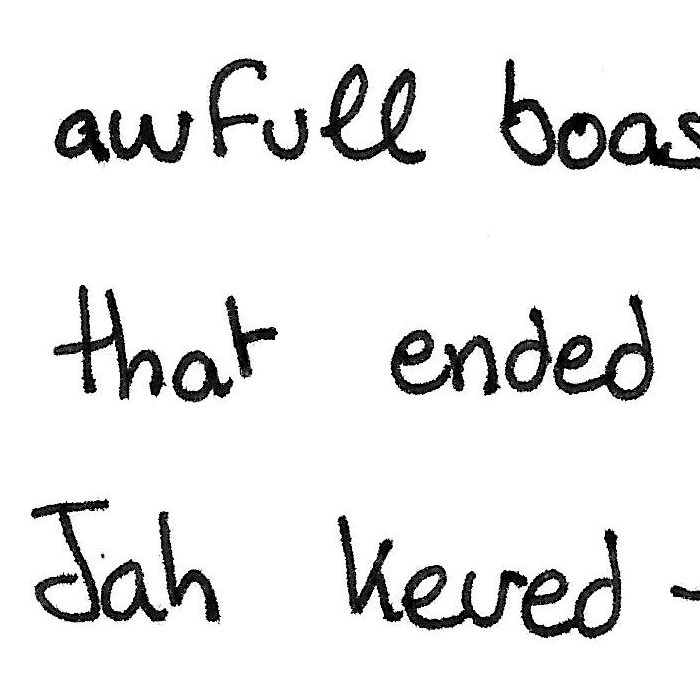 awfull boas
that ended
Jah Keved -